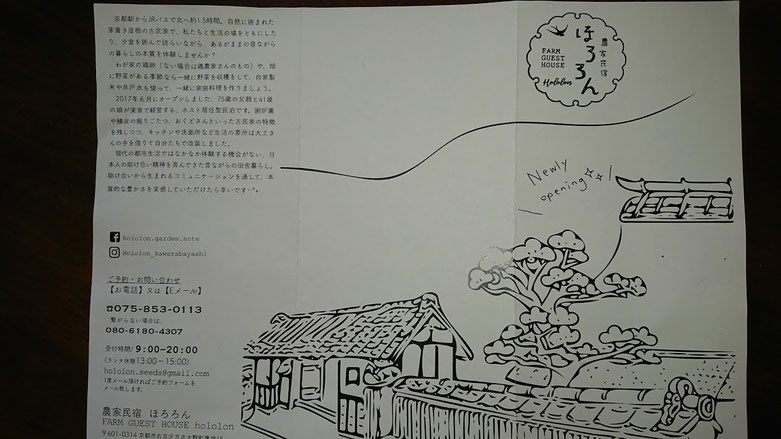 京都駅からJRバスで北へ約1.5時間。自然に囲まれた
茅葺き屋根の古民家で、私たちと生活の場をともにした
り、夕食を囲んで語らいながら、あるがままの昔ながら
の暮らしの本質を体験しませんか?
わが家の鶏卵(ない場合は鶏農家さんのもの)や、畑
に野菜がある季節なら一緒に野菜を収穫をして、自家製
米や井戸水も使って、一緒に家庭料理を作りましょう。
2017年6月にオープンしました、75歳の父親と41歳
の娘が実家で経営する、ホスト居住型民泊です。囲炉裏
や練炭の掘りごたつ、おくどさんといった古民家の特徴
を残しつつ、キッチンや洗面所など生活の要所は大工さ
んの手を借りて自分たちで改装しました。
現代の都市生活ではなかなか体験する機会がない、日
本人の助け合い精神を育んできた昔ながらの田舎暮らし。
助け合いから生まれるコミュニケーションを通して、本
質的な豊かさを実感していただけたら幸いです
hololon.garden.note
Hololon_kawarabayashi
ご予約・お問い合わせ
【お電話】又は【Eメール】
☎075-853-0113
繋がらない場合は、
080-6180-4307
受付時間/9:00–20:00
(ランチ休憩13:00–15:00)
hololon.seeds@gmail.com
1度メール頂ければご予約フォームを
メール致します。
農家民宿 ほろろん
FARM GUEST HOUSE hololon
〒601-0314 京都市右京区京北大野町
農家民宿
ほろろん
FARM
GUEST
HOUSE
Hololon
Newly
opening